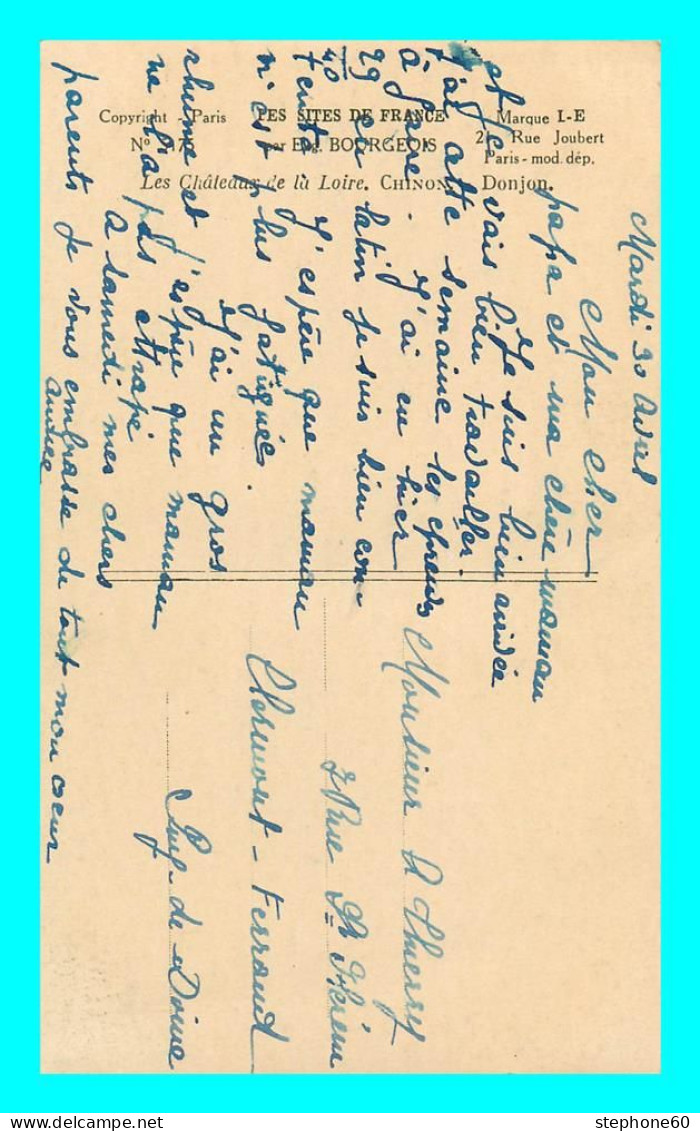 Copyright - Paris
LES SITES DE FRANCE
Marque I-E
N°
par Eug. BOURGEOIS
Rue Joubert
Paris - mod. dép.
Les Châteaux de la Loire. CHINON Donjon.
Mardi 30 Avril
Mon Cher
papa et ma chère maman
Je suis bien arrivée
et je vais bien travailler.
j'ai cette semaine les epreuves
à faire. J'ai eu hier
29/40 en latin je suis bien con-
tente. J'espère que maman
n'est plus fatiguée.
J'ai un gros
rhume et j'espère que maman
ne l'a pas attrapé
A samedi mes chers
parents je vous embrasse de tout mon coeur
Andrée
Monsieur A Thierry
7 Rue St
Clermont-Ferrand
Puy-de-Dôme
stephone60